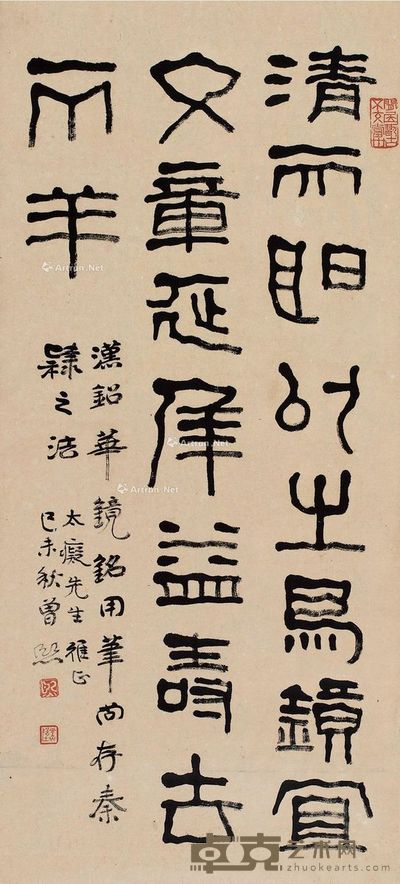 清而明以之為鏡宜
文章延年益壽去
不羊
漢鉛華鏡銘用筆尚存秦
隸之法
太癡先生雅正
己未秋曾熙
Artron.Net
Artron.Net
Artron.Net
Artron.Net
卓克艺术网
www.zhuokearts.com